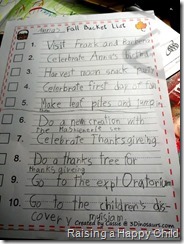 Fall Bucket List
1. Visit Frank and Barberas
2. Celebrate Annies
3. Harvest moon snack Party
4. Celerbrate first day of fall
5. Make leaf piles and jump
6. Do a new creation with
the
7. Celebrate Thanksgiving
8. Do a thanks tree for
thanksgiving
9. Go to the explOratorium
10. Go to the children's dis-
covery myisiom
Created by Cassie @ 3Dinosaurs.com
Raising a Happy Child